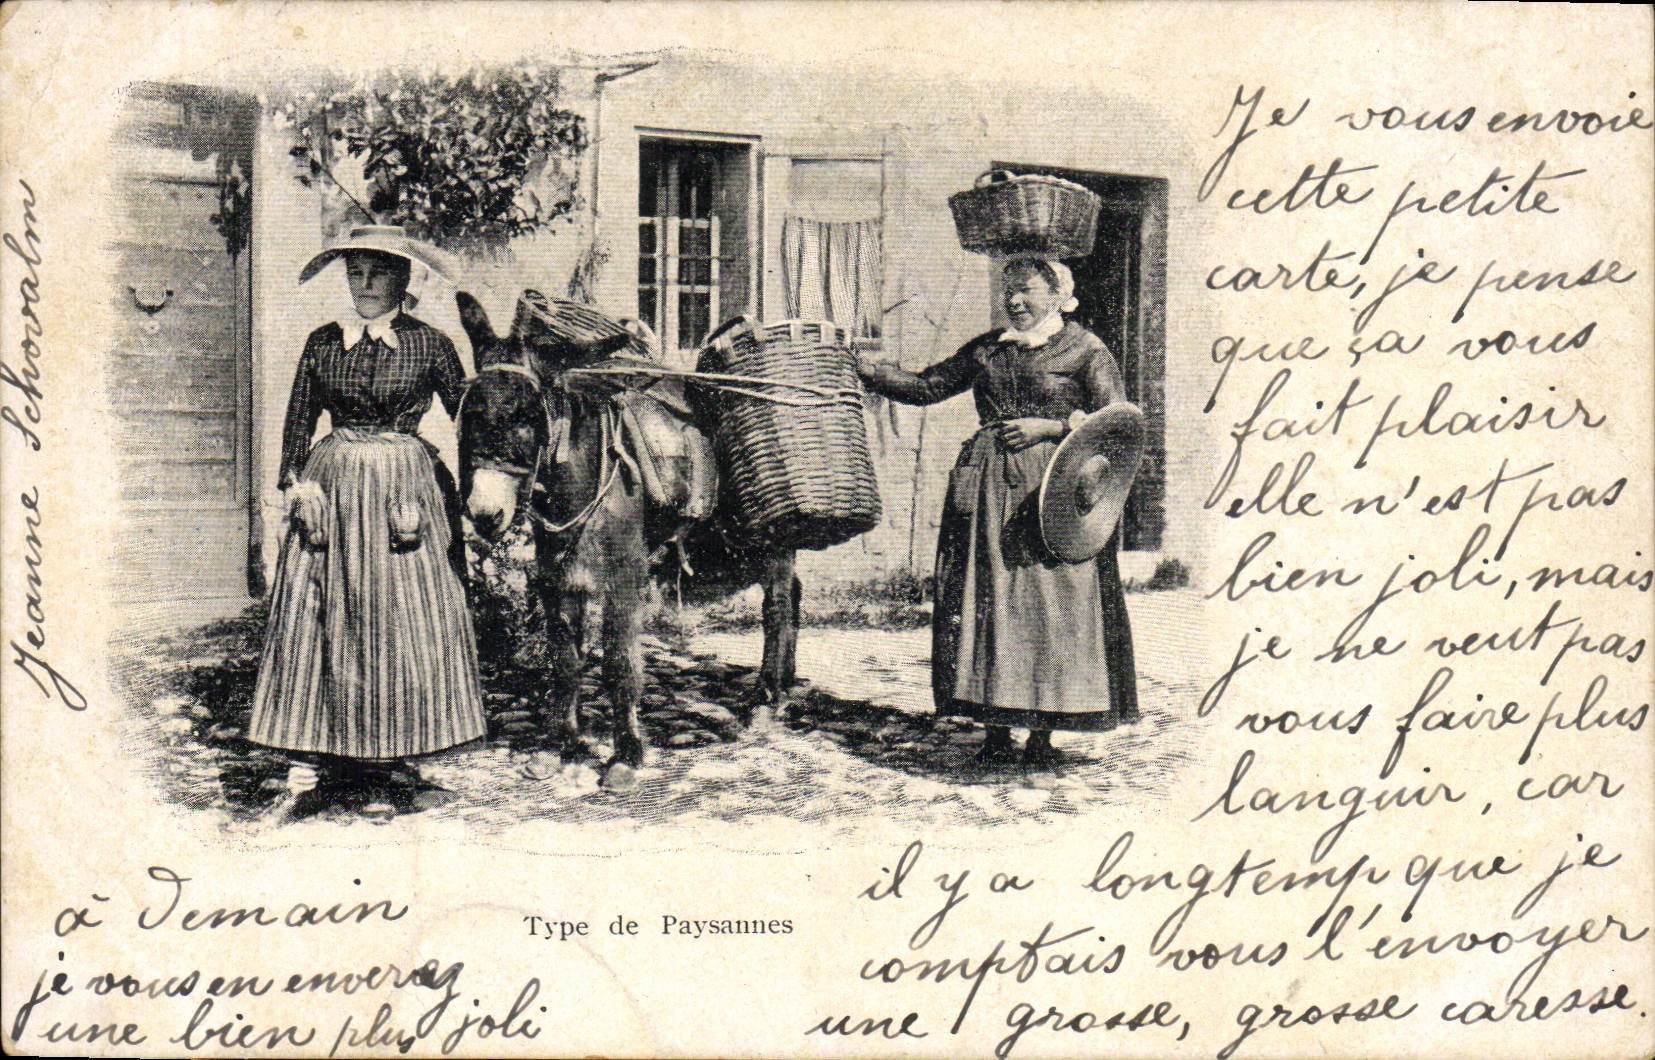 Je vous envoie
cette petite
carte, je pense
que ça vous
fait plaisir
elle n'est pas
bien joli, mais
je ne veut pas
vous faire plus
languir, car
il y a longtemp que je
comptais vous l'envoyer
une grosse, grosse caresse.
Type de Paysannes
à Demain
je vous en enverez
une bien plus joli
Jeanne